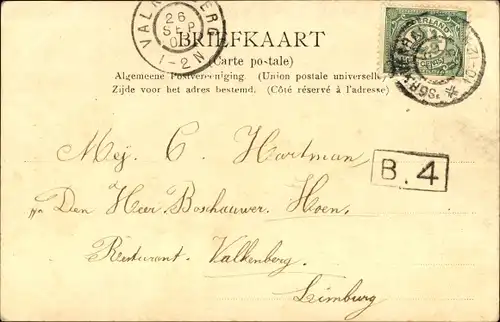 VALKENBERG
26 SEP 0
1-2 N
BRIEFKAART
(Carte postale)
Algemeene Postvereeniging. (Union postale universelle)
Zijde voor het adres bestemd. (Côté réservé à l'adresse)
Mej. C. Hartman
B. 4
p/a Den Heer Boschauwer Hoen,
Restaurant. Valkenberg.
Limburg